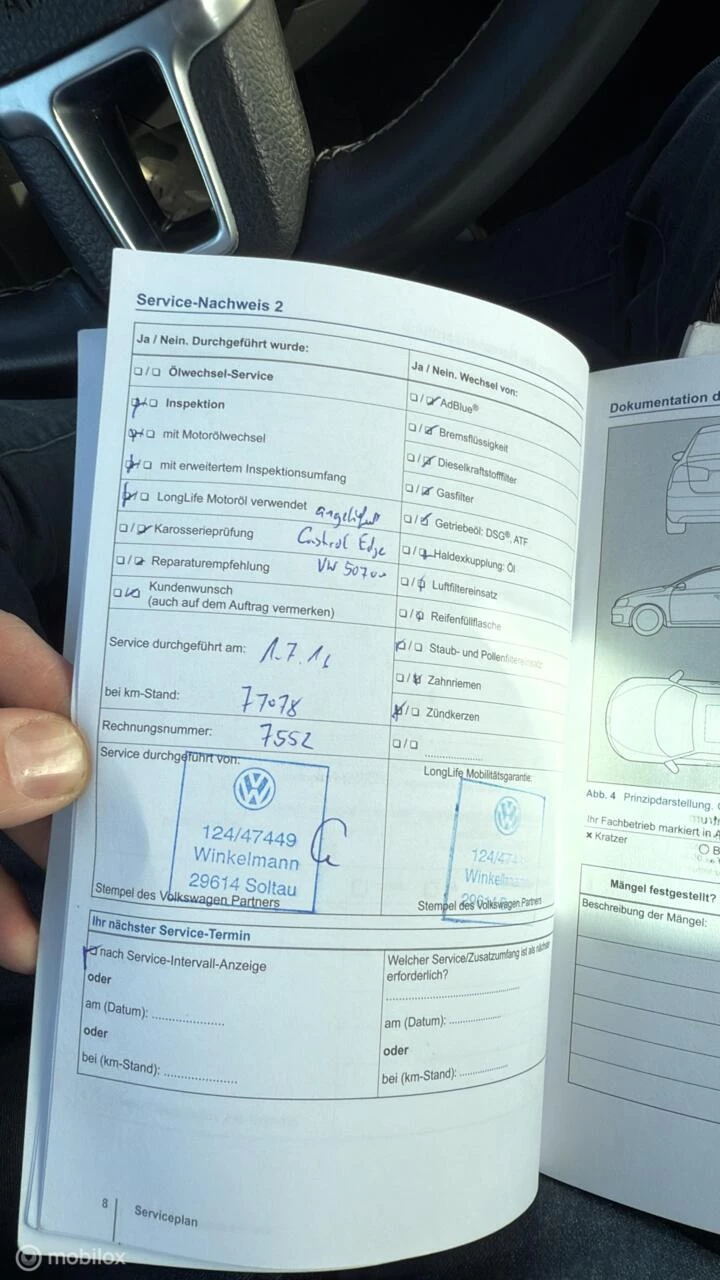 Service-Nachweis 2
Ja / Nein. Durchgeführt wurde:
❏/❏ Ölwechsel-Service
❏/❏ Inspektion
❏/❏ mit Motorölwechsel
❏/❏ mit erweitertem Inspektionsumfang
❏/❏ LongLife Motoröl verwendet angeliefert
❏/❏ Karosserieprüfung Castrol Edge
❏/❏ Reparaturempfehlung VW 50700
❏/❏ Kundenwunsch
(auch auf dem Auftrag vermerken)
Service durchgeführt am: 1.7.16
bei km-Stand: 77078
Rechnungsnummer: 7552
Service durchgeführt von:
124/47449
Winkelmann
29614 Soltau
Stempel des Volkswagen Partners
Ja / Nein. Wechsel von:
❏/❏ AdBlue®
❏/❏ Bremsflüssigkeit
❏/❏ Dieselkraftstofffilter
❏/❏ Gasfilter
❏/❏ Getriebeöl: DSG®, ATF
❏/❏ Haldexkupplung: Öl
❏/❏ Luftfiltereinsatz
❏/❏ Reifenfüllflasche
❏/❏ Staub- und Pollenfiltereinsatz
❏/❏ Zahnriemen
❏/❏ Zündkerzen
❏/❏ ....................
LongLife Mobilitätsgarantie:
124/474
Winkelmann
Stempel des Volkswagen Partners
Ihr nächster Service-Termin
❏ nach Service-Intervall-Anzeige
oder
am (Datum): ....................
oder
bei (km-Stand): ....................
Welcher Service/Zusatzumfang ist als nächster
erforderlich?
....................
am (Datum): ....................
oder
bei (km-Stand): ....................
8 Serviceplan
Dokumentation d
Abb. 4 Prinzipdarstellung.
Ihr Fachbetrieb markiert in A
x Kratzer
O B
Mängel festgestellt?
Beschreibung der Mängel:
mobilox